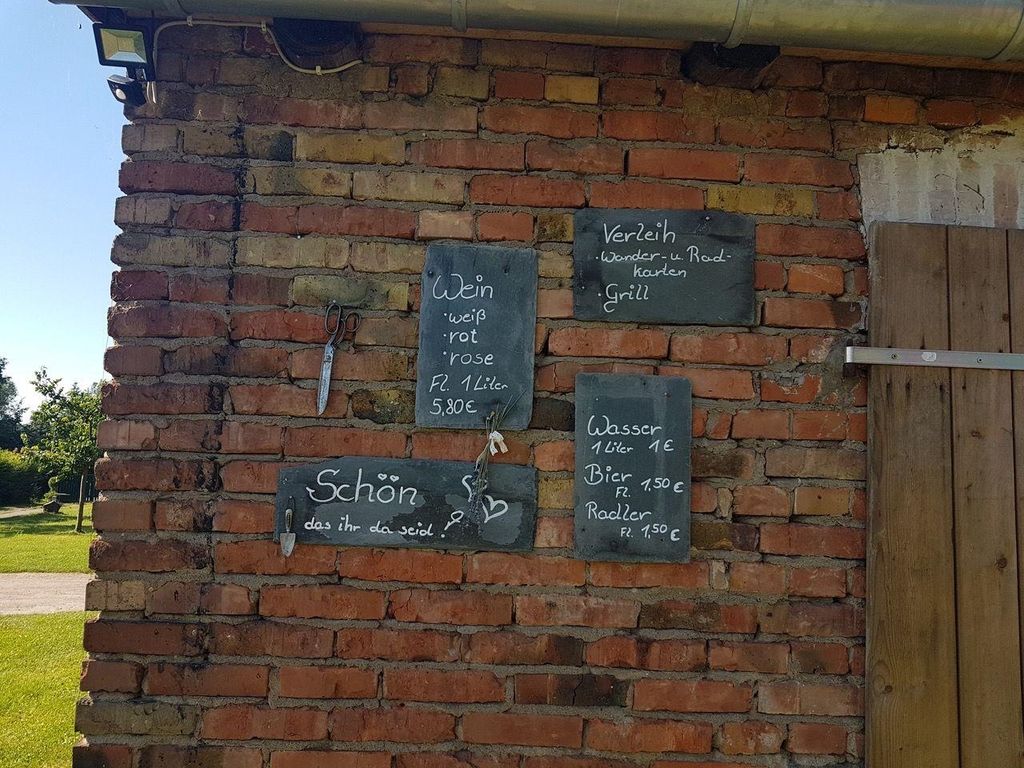 Verleih
·Wander-u Rad-
karten
·Grill
Wein
·weiß
·rot
·rose
Fl. 1 Liter
5,80€
Wasser
1 Liter 1€
Bier
Fl. 1,50€
Radler
Fl. 1,50€
Schön
das ihr da seid!